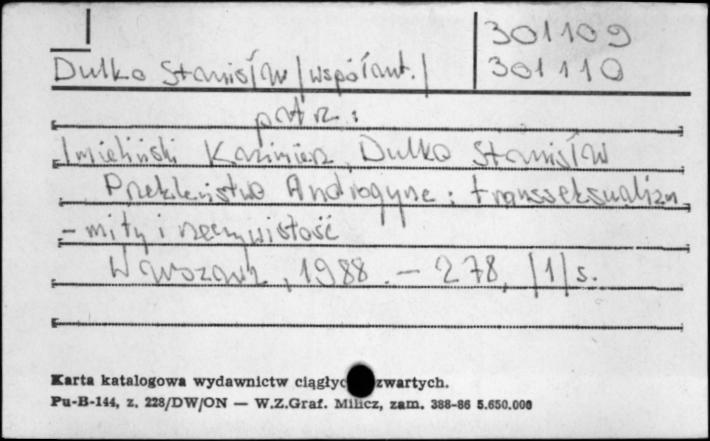 301109
Dulko Stanisław /współaut./ 301110
patrz:
Imieliński Kazimierz, Dulko Stanisław
Przekleństwo Androgyne: transseksualizm
- mity i rzeczywistość
Warszawa, 1988. - 278, /1/ s.
Karta katalogowa wydawnictw ciągłyc zwartych.
Pu-B-144, z. 228/DW/ON — W.Z.Graf. Milicz, zam. 388-86 5.650.000